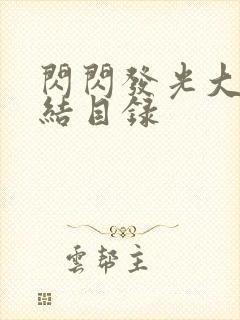 閃閃發光大
結目錄
雲幫主